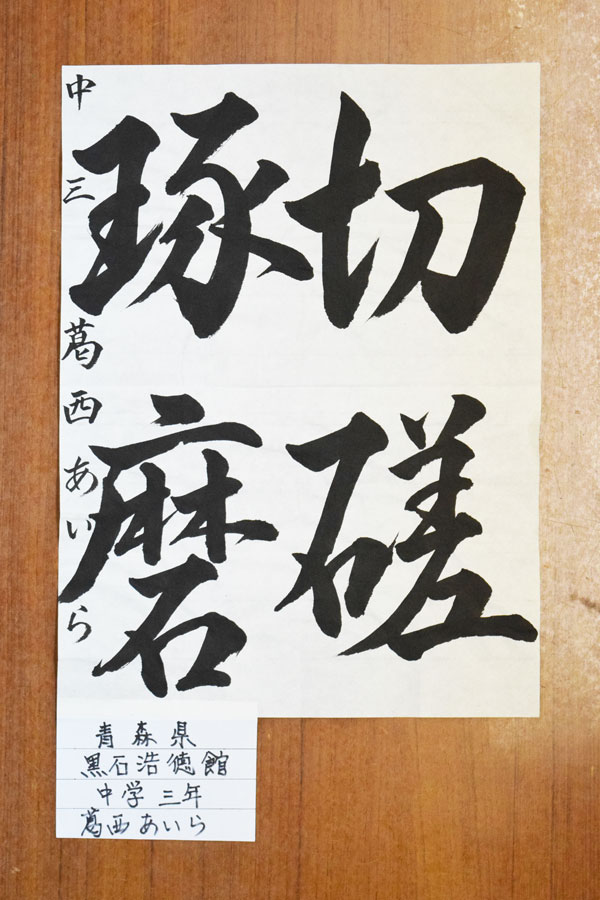 切磋
琢磨
中三 葛西あいら
青森県
黒石浩徳館
中学三年
葛西あいら